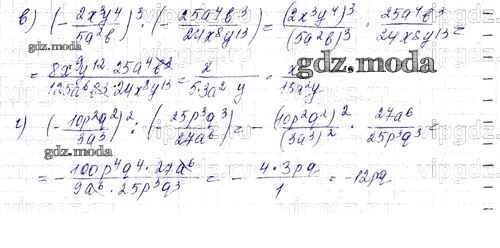 в) (- 2x³y⁴ / 5a²b)³ : (- 25a⁴b³ / 24x⁸y¹³) = (2x³y⁴)³ / (5a²b)³ · 25a⁴b³ / 24x⁸y¹³ =
gdz.moda
= 8x⁹y¹² · 25a⁴b³ / 125a⁶b³ · 24x⁸y¹³ = x / 5·3a²y = x / 15a²y
gdz.moda
г) (- 10p²q² / 3a³)² : (- 25p³q³ / 27a⁶) = - (10p²q²)² / (3a³)² · 27a⁶ / 25p³q³ =
gdz.moda
= - 100p⁴q⁴ · 27a⁶ / 9a⁶ · 25p³q³ = - 4·3pq / 1 = -12pq
gdz.moda